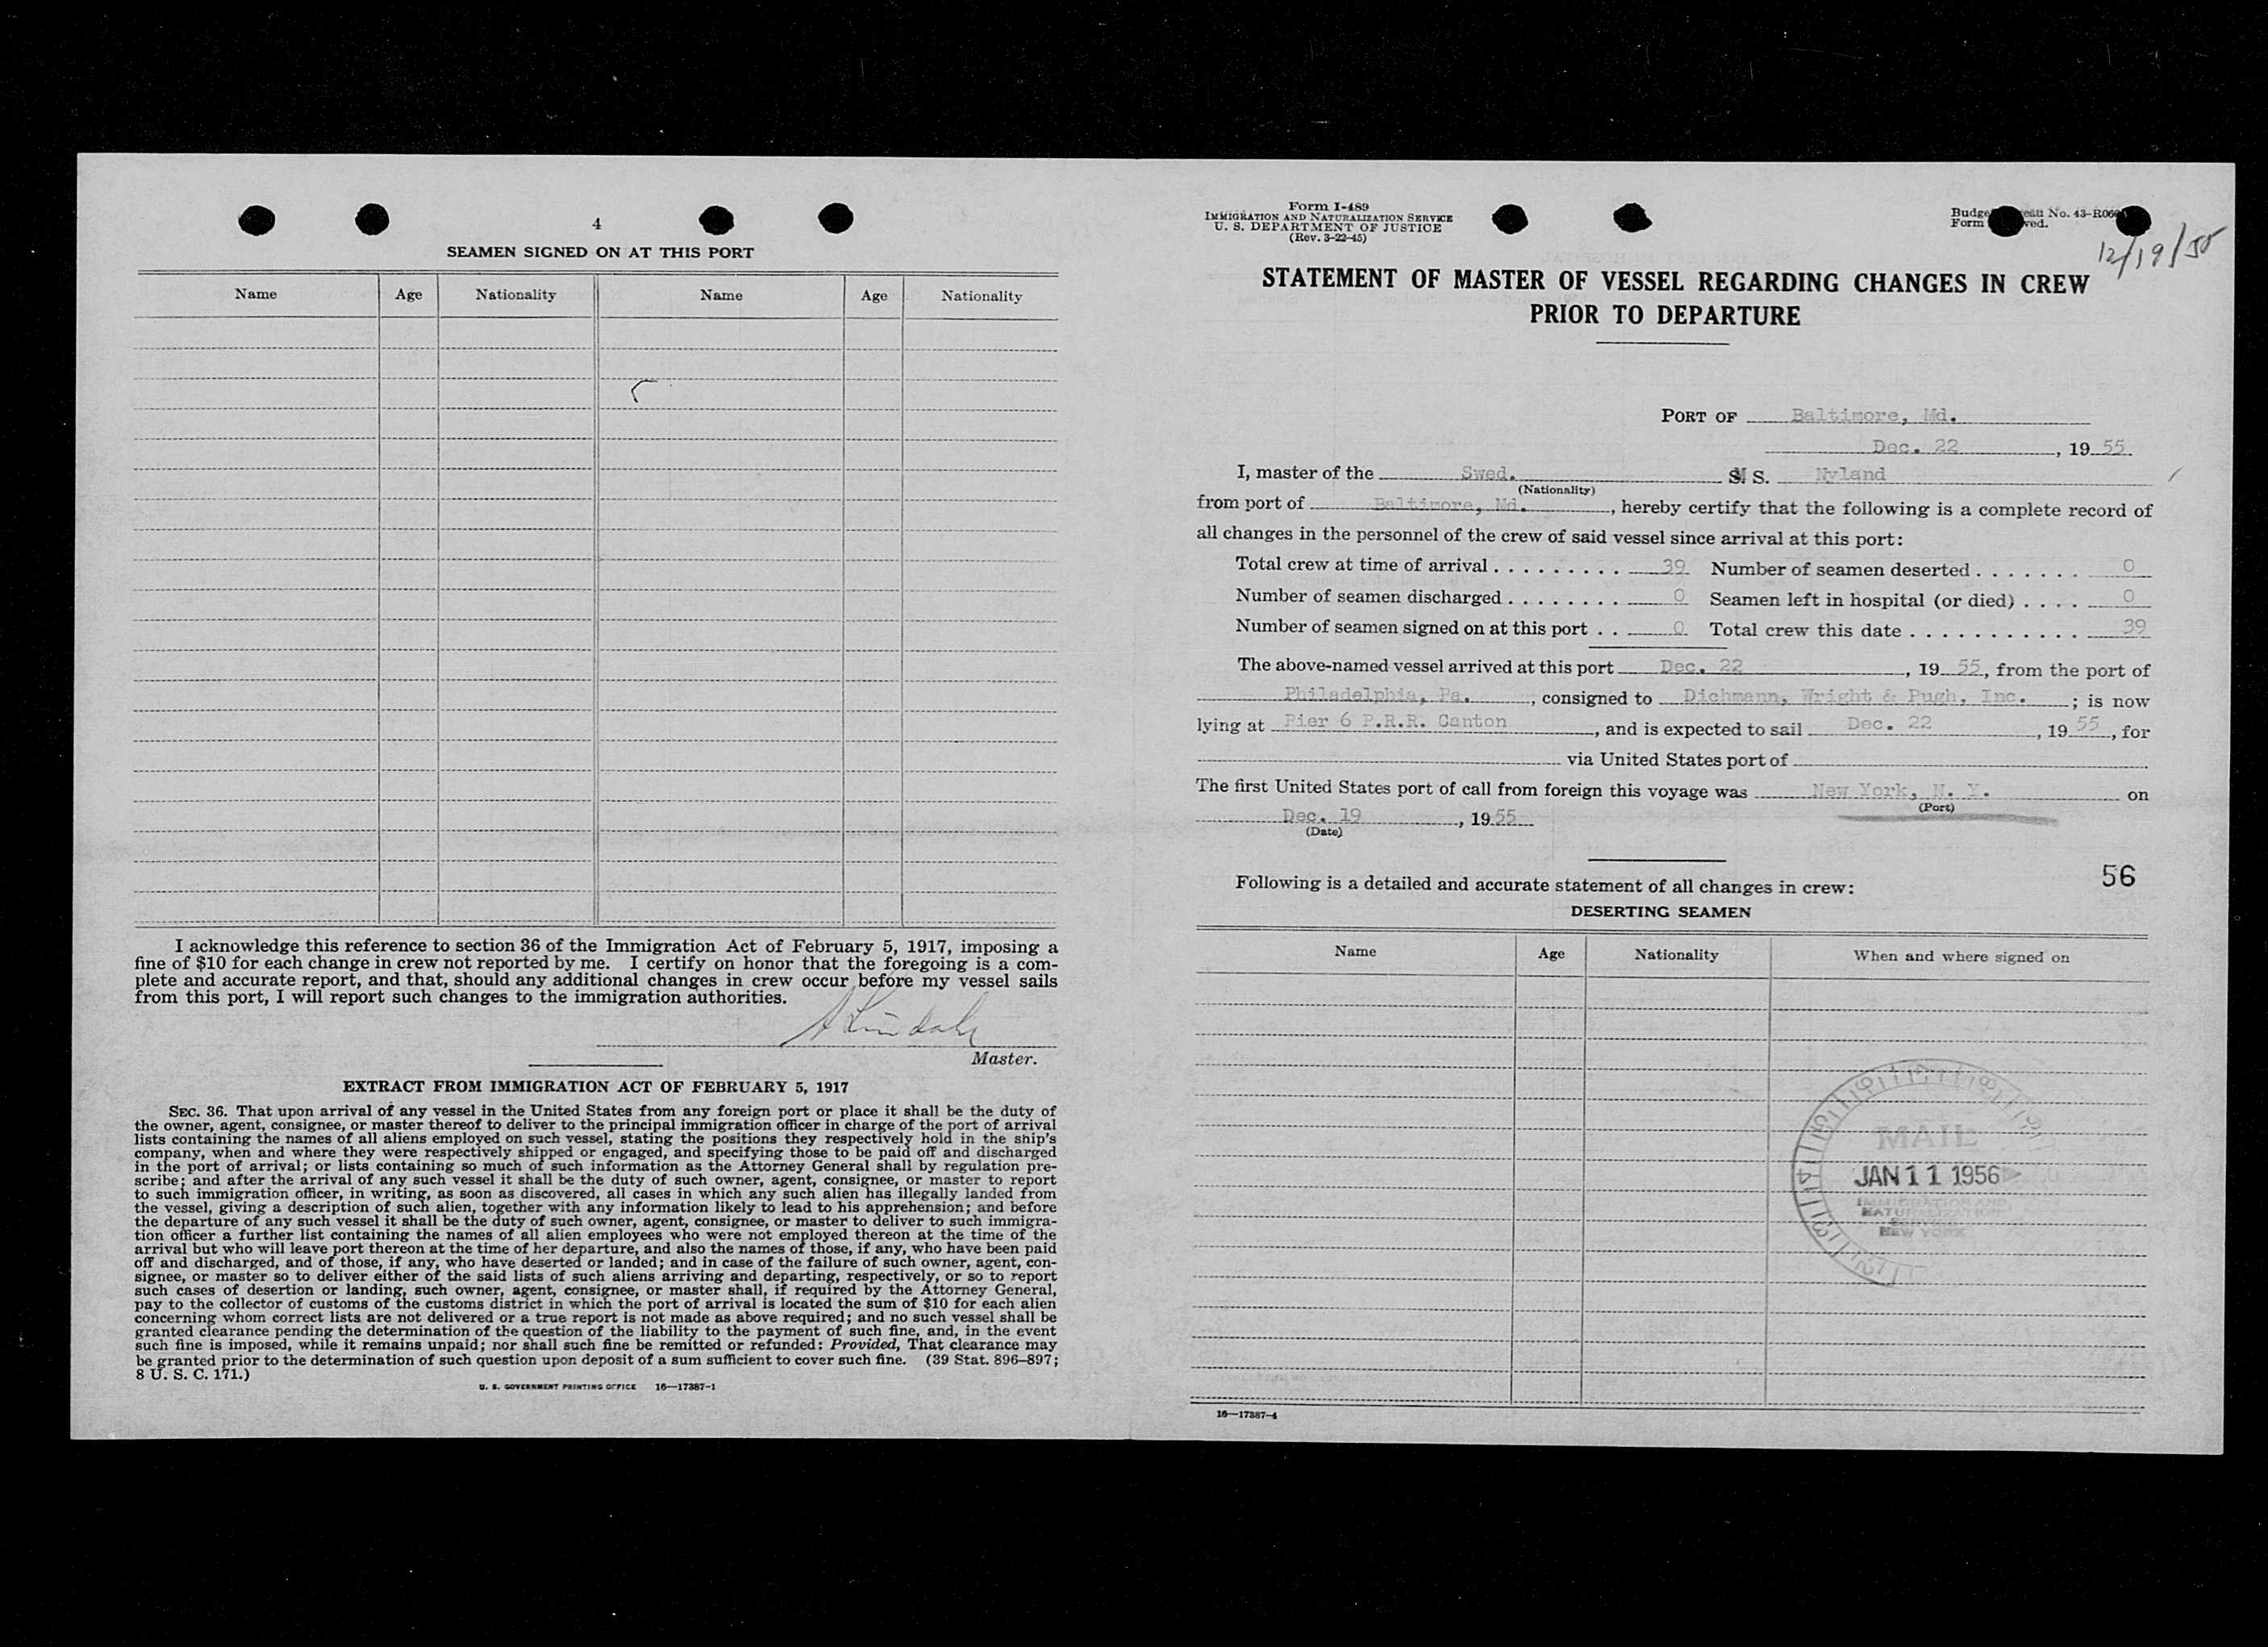 4
SEAMEN SIGNED ON AT THIS PORT
Name Age Nationality Name Age Nationality
I acknowledge this reference to section 36 of the Immigration Act of February 5, 1917, imposing a
fine of $10 for each change in crew not reported by me. I certify on honor that the foregoing is a com-
plete and accurate report, and that, should any additional changes in crew occur before my vessel sails
from this port, I will report such changes to the immigration authorities.
Master.
EXTRACT FROM IMMIGRATION ACT OF FEBRUARY 5, 1917
SEC. 36. That upon arrival of any vessel in the United States from any foreign port or place it shall be the duty of
the owner, agent, consignee, or master thereof to deliver to the principal immigration officer in charge of the port of arrival
lists containing the names of all aliens employed on such vessel, stating the positions they respectively hold in the ship's
company, when and where they were respectively shipped or engaged, and specifying those to be paid off and discharged
in the port of arrival; or lists containing so much of such information as the Attorney General shall by regulation pre-
scribe; and after the arrival of any such vessel it shall be the duty of such owner, agent, consignee, or master to report
to such immigration officer, in writing, as soon as discovered, all cases in which any such alien has illegally landed from
the vessel, giving a description of such alien, together with any information likely to lead to his apprehension; and before
the departure of any such vessel it shall be the duty of such owner, agent, consignee, or master to deliver to such immigra-
tion officer a further list containing the names of all alien employees who were not employed thereon at the time of the
arrival but who will leave port thereon at the time of her departure, and also the names of those, if any, who have been paid
off and discharged, and of those, if any, who have deserted or landed; and in case of the failure of such owner, agent, con-
signee, or master so to deliver either of the said lists of such aliens arriving and departing, respectively, or so to report
such cases of desertion or landing, such owner, agent, consignee, or master shall, if required by the Attorney General,
pay to the collector of customs of the customs district in which the port of arrival is located the sum of $10 for each alien
concerning whom correct lists are not delivered or a true report is not made as above required; and no such vessel shall be
granted clearance pending the determination of the question of the liability to the payment of such fine, and, in the event
such fine is imposed, while it remains unpaid; nor shall such fine be remitted or refunded: Provided, That clearance may
be granted prior to the determination of such question upon deposit of a sum sufficient to cover such fine. (39 Stat. 896–897;
8 U. S. C. 171.)
U. S. GOVERNMENT PRINTING OFFICE 16—17387-1
Form I-489
IMMIGRATION AND NATURALIZATION SERVICE
U. S. DEPARTMENT OF JUSTICE
(Rev. 3-22-45)
No. 43-R06
Form
12/19/55
STATEMENT OF MASTER OF VESSEL REGARDING CHANGES IN CREW
PRIOR TO DEPARTURE
PORT OF Baltimore, Md.
Dec. 22, 19 55
I, master of the Swed. S. Nyland
(Nationality)
from port of Baltimore, Md., hereby certify that the following is a complete record of
all changes in the personnel of the crew of said vessel since arrival at this port:
Total crew at time of arrival . . . . . . . . . 39 Number of seamen deserted . . . . . . . 0
Number of seamen discharged . . . . . . . . 0 Seamen left in hospital (or died) . . . . 0
Number of seamen signed on at this port . . 0 Total crew this date . . . . . . . . . . . . 39
The above-named vessel arrived at this port Dec. 22, 19 55, from the port of
Philadelphia, Pa., consigned to Dichmann, Wright & Pugh, Inc.; is now
lying at Pier 6 P.R.R. Canton, and is expected to sail Dec. 22, 19 55, for
via United States port of
The first United States port of call from foreign this voyage was New York, N. Y. on
(Port)
Dec. 19, 19 55
(Date)
56
Following is a detailed and accurate statement of all changes in crew:
DESERTING SEAMEN
Name Age Nationality When and where signed on
MAIL
JAN 11 1956
IMMIGRATION AND
NEW YORK
16—17387-4